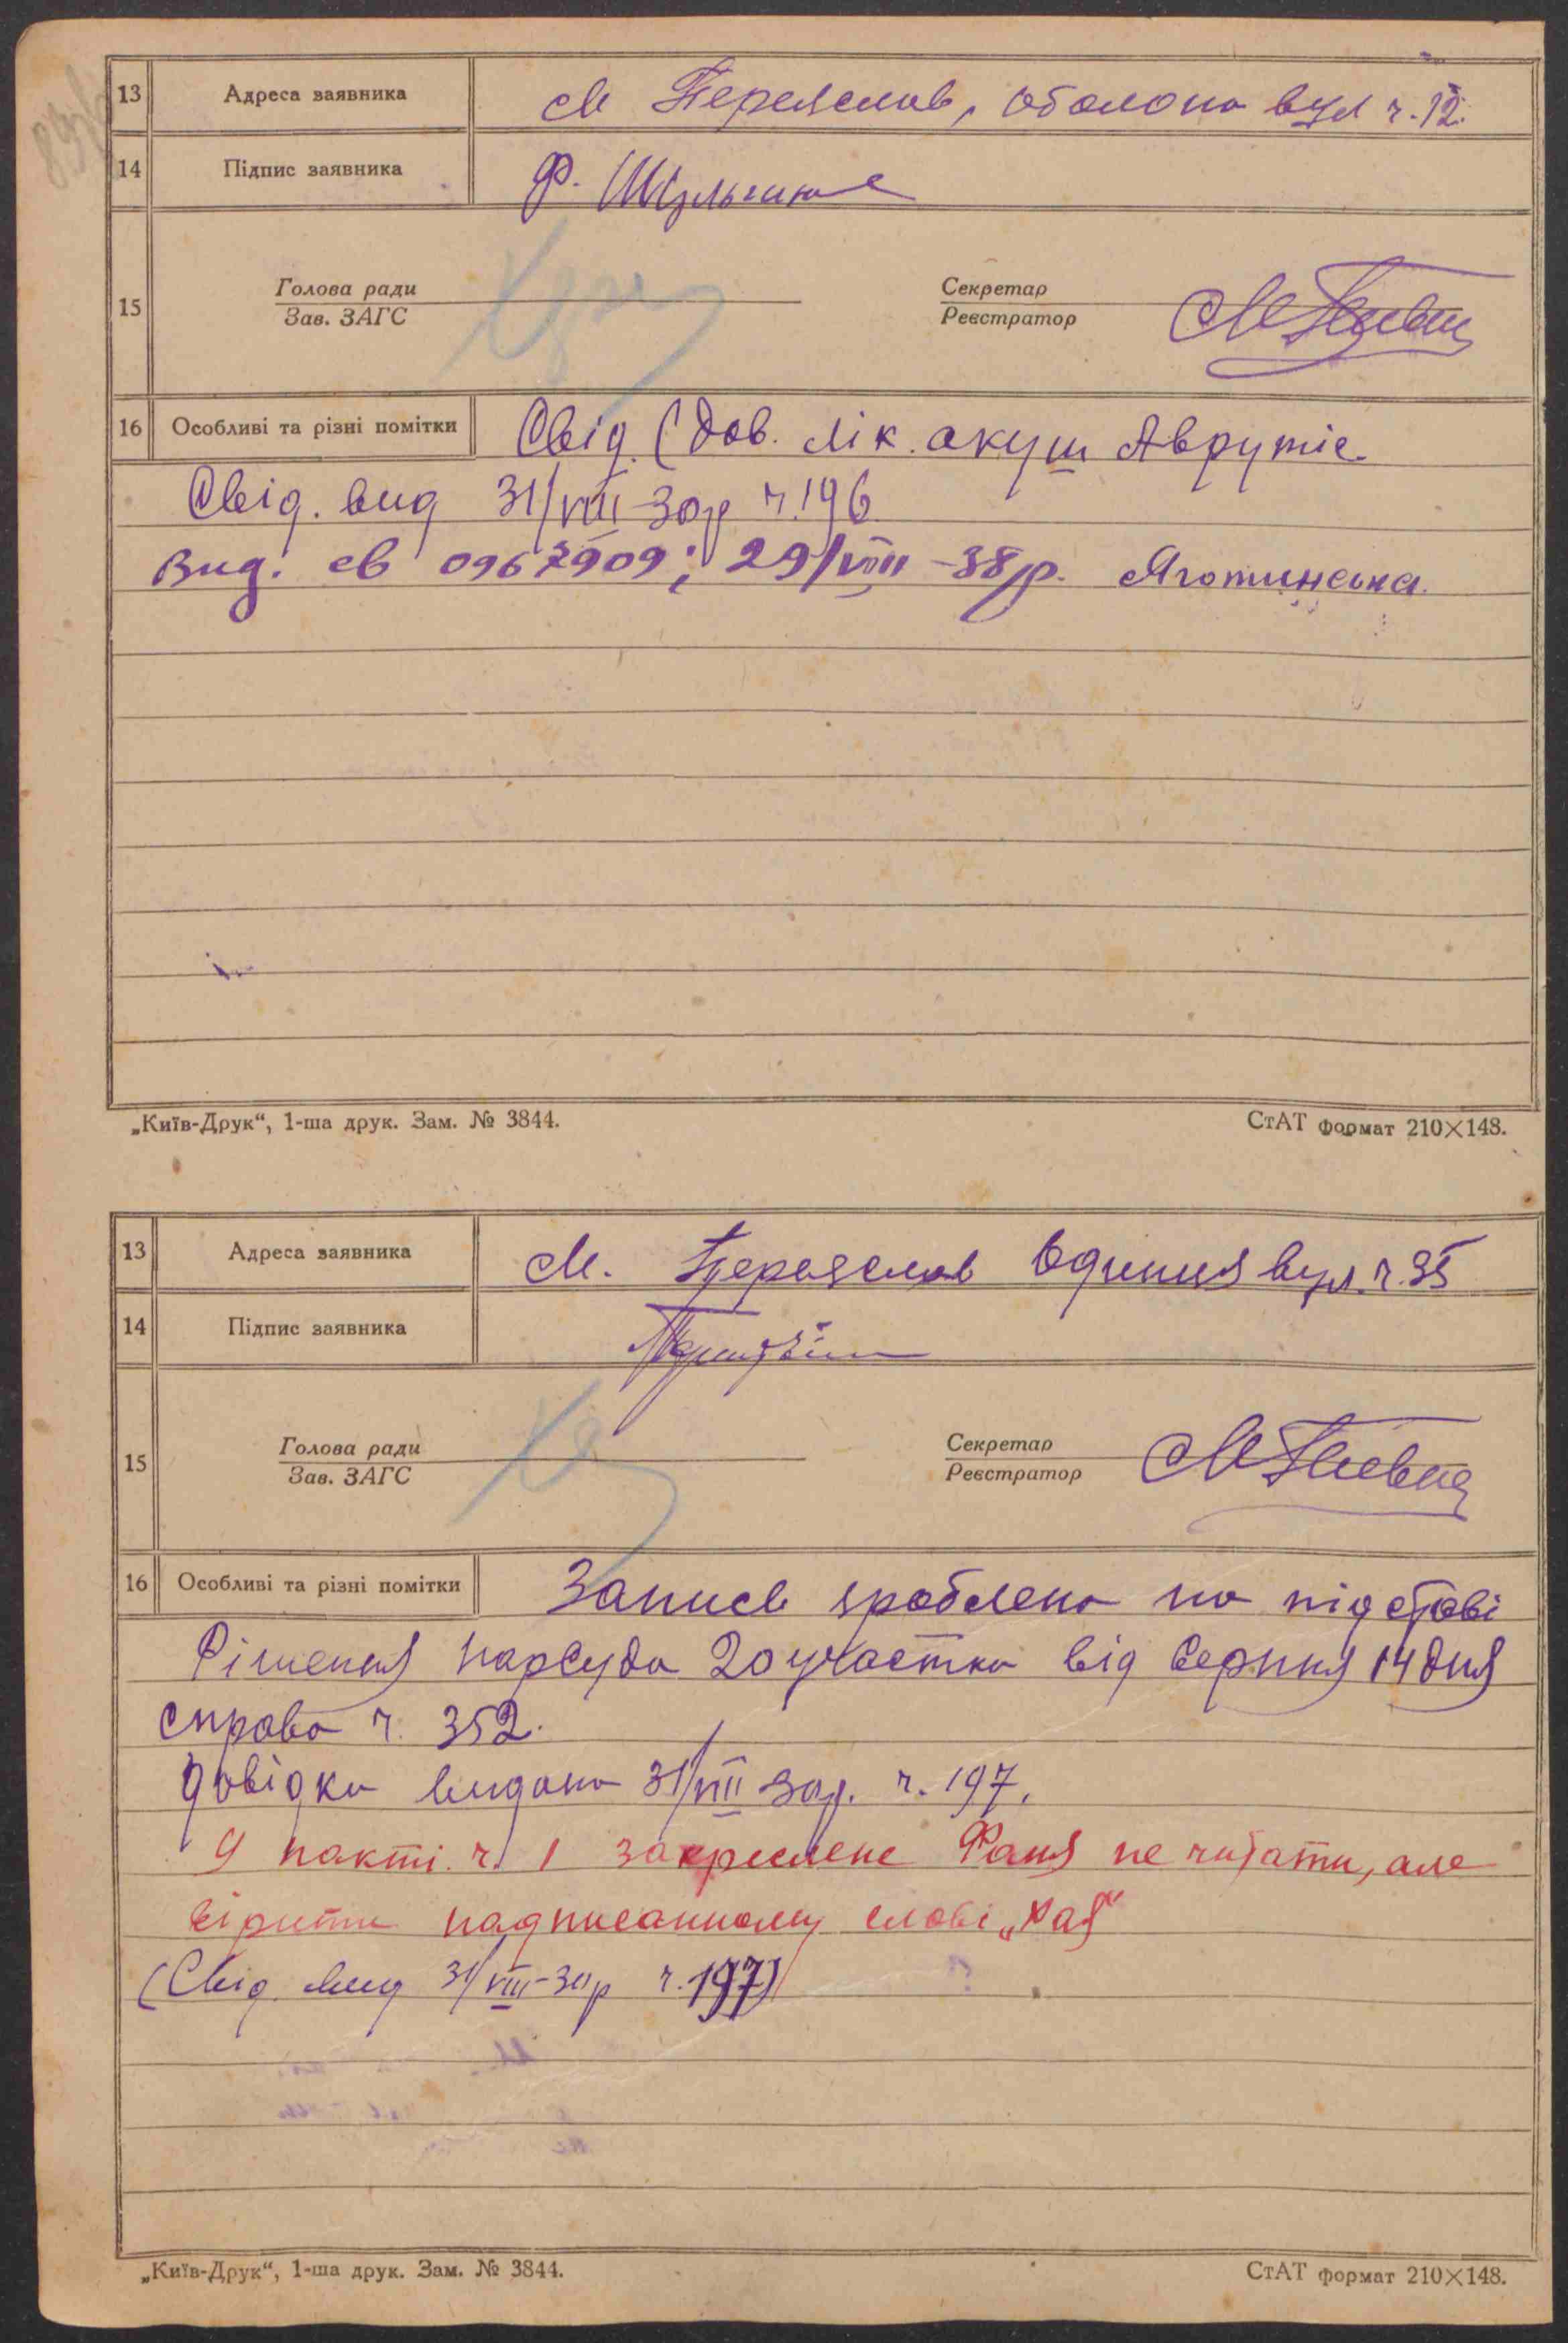 13 Адреса заявника м Переяслав, Оболона вул ч. 12.
14 Підпис заявника Ф.
15 Голова ради
Зав. ЗАГС
Секретар
Реєстратор
16 Особливі та різні помітки Свід. (дов. лік. акуш Аврутіс
Свід. вид 31/VIII-30р ч. 196
Вид. св 0967909; 29/VIII-38р. Яготинська.
„Київ-Друк“, 1-ша друк. Зам. № 3844. СтАТ формат 210×148.
13 Адреса заявника м. Переяслав вул. ч. 35
14 Підпис заявника
15 Голова ради
Зав. ЗАГС
Секретар
Реєстратор
16 Особливі та різні помітки Запись зроблено на підставі
Рішення нарсуда 20 участка від Серпня 14 дня
справа ч. 352.
Довідка видана 31/VIII 30р. ч. 197.
У пакті ч. 1 закреслене Фаня не читати, але
вірити надписанному слові „Рая“
(Свід. вид 31/VIII-30р ч. 197)
„Київ-Друк“, 1-ша друк. Зам. № 3844. СтАТ формат 210×148.